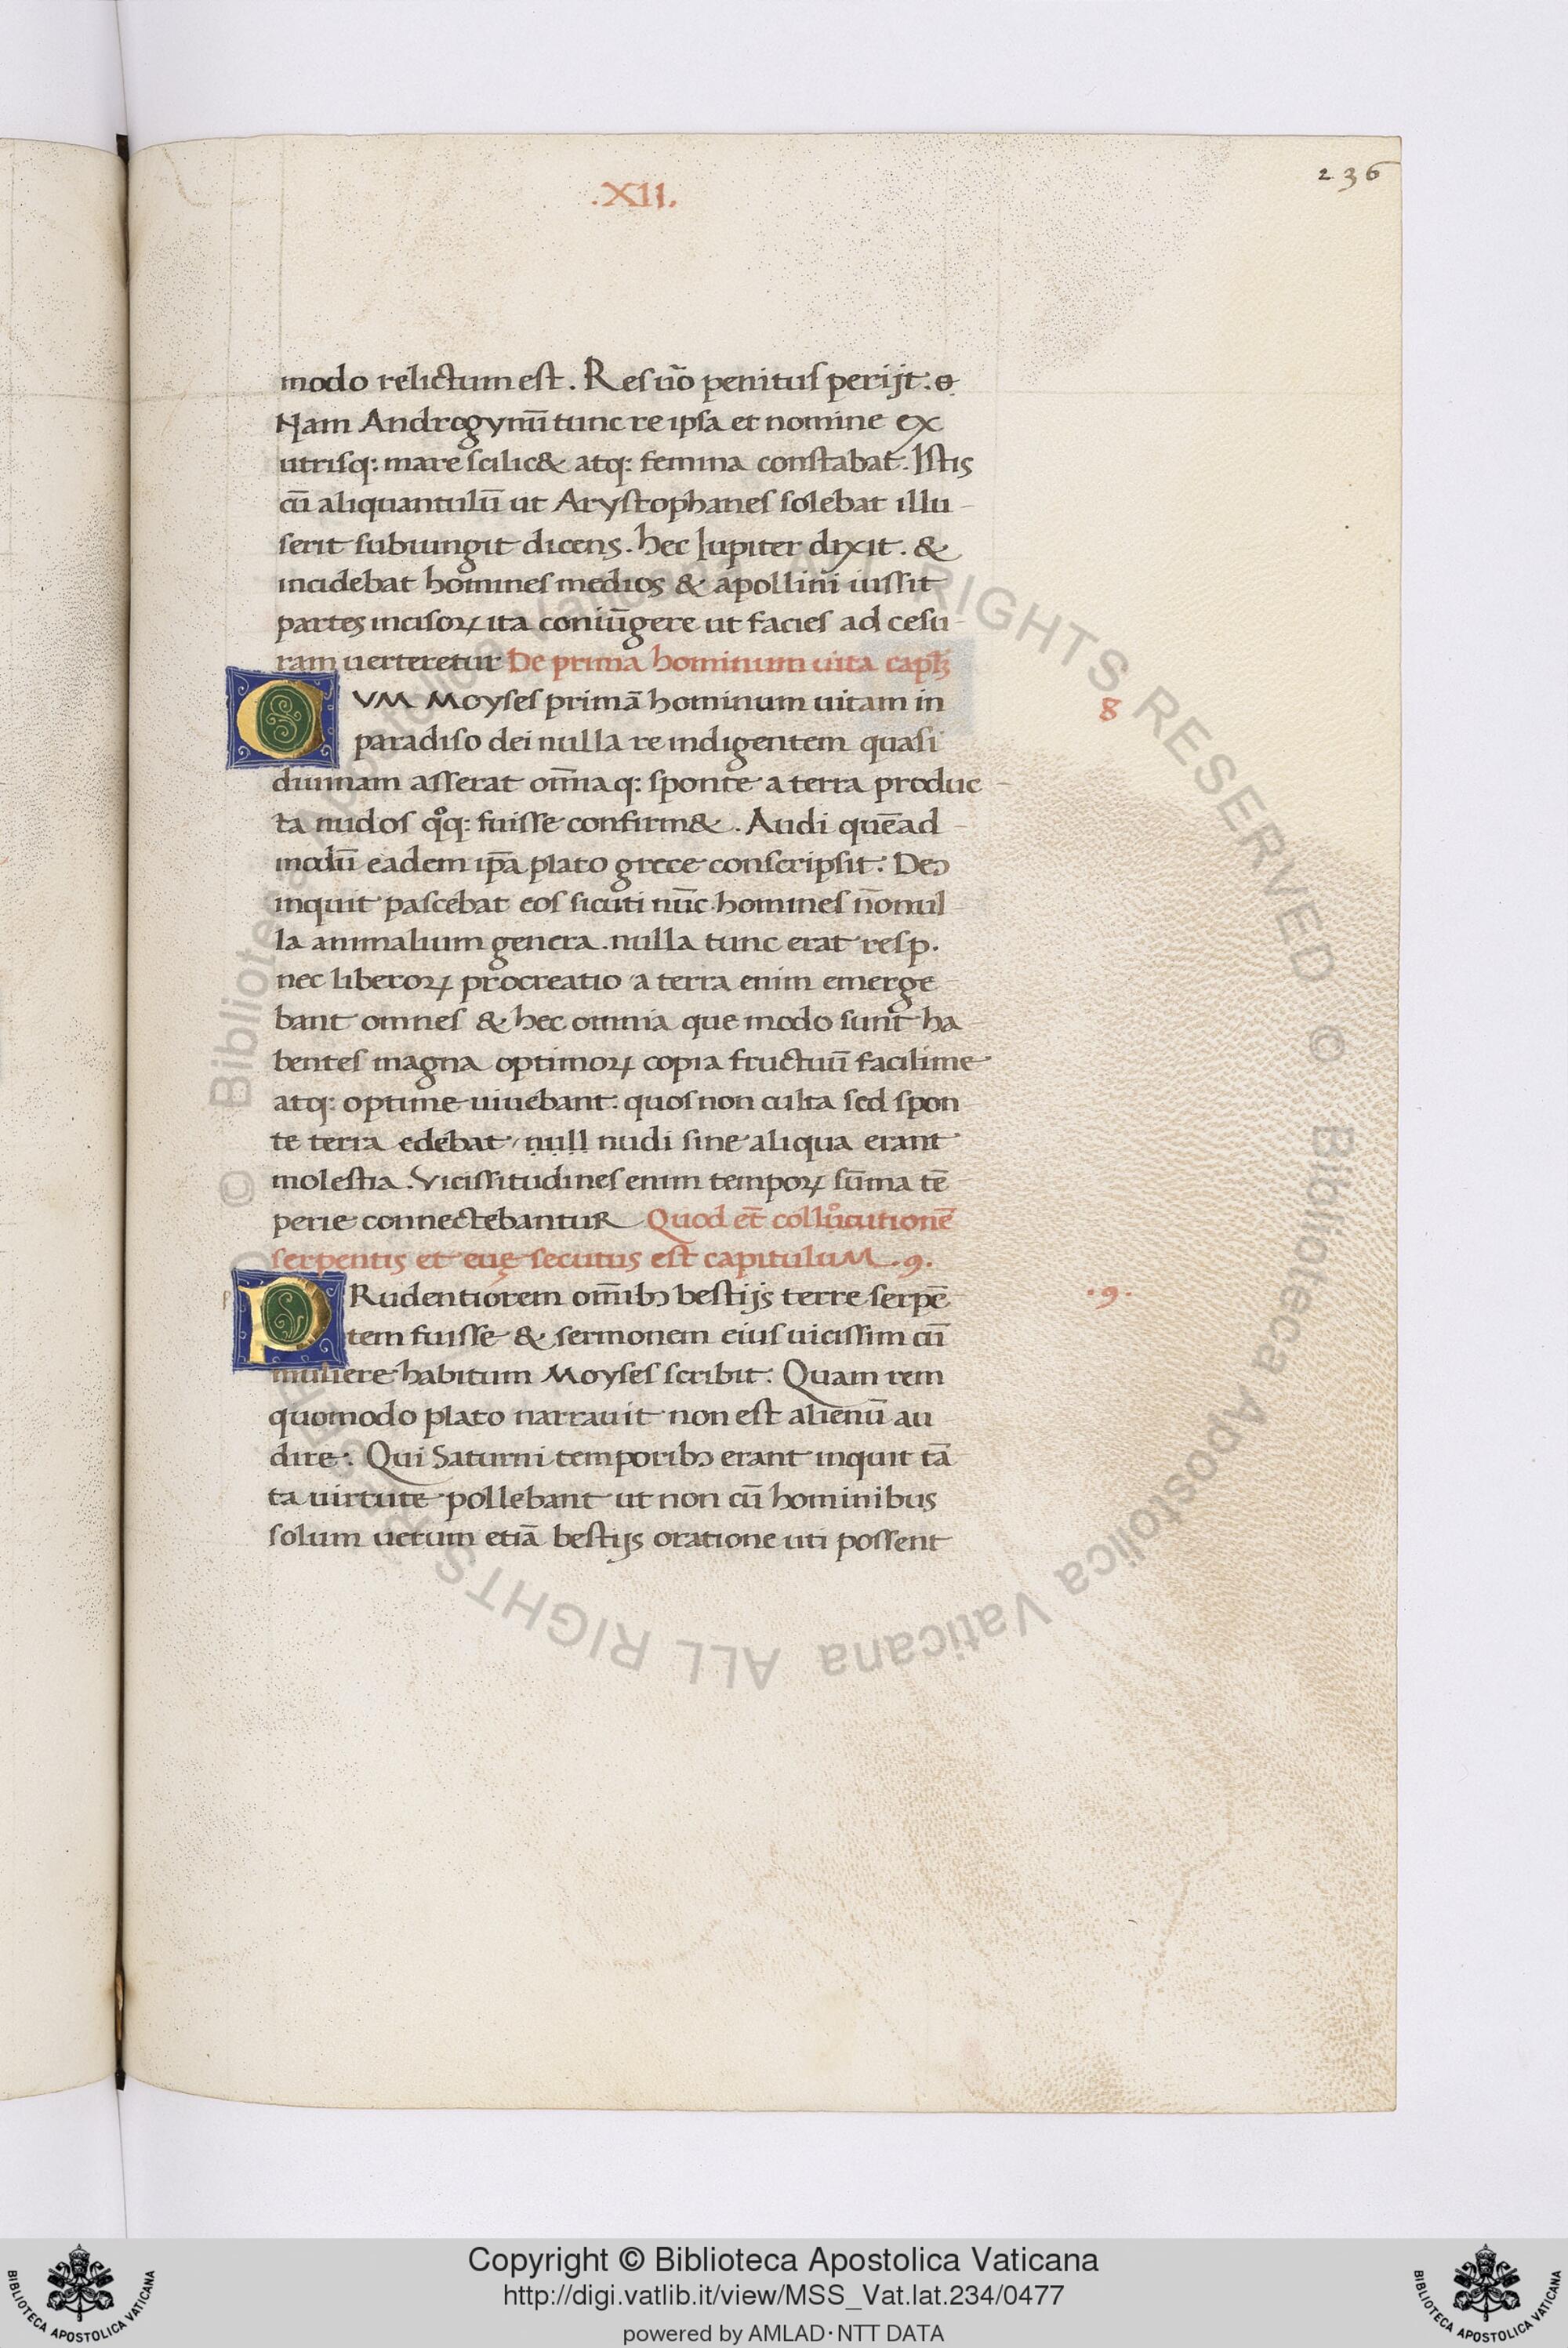 236
.XII.
modo relictum est. Res uo̅ penitus perijt: ꝋ
Nam Androgynu̅ tunc re ipsa et nomine ex
utrisq: mare scilic& atq: femina constabat. Istis
cu̅ aliquantulu̅ ut Arystophanes solebat illu
serit subiungit dicens. hec Iupiter dixit. &
incidebat homines medios & apollini iussit
partes incisoꝝ ita coniu̅gere ut facies ad cesu
ram uerteretur De prima hominum uita
CVM Moyses prima̅ hominum uitam in
8
paradiso dei nulla re indigentem quasi
diuinam asserat om̅ia q: sponte a terra produc
ta nudos qͦq: fuisse confirm&. Audi que̅ad
modu̅ eadem ip̅a plato grece conscripsit: Deꝰ
inquit pascebat eos sicuti nu̅c homines no̅nul
la animalium genera. nulla tunc erat resp.
nec liberoꝝ procreatio / a terra enim emerge
bant omnes & hec omnia que modo sunt ha
bentes magna optimoꝝ copia fructuu̅ facilime
atq: optime uiuebant: quos non culta sed spon
te terra edebat / null nudi sine aliqua erant
molestia. Vicissitudines enim tempoꝝ su̅ma te̅
perie connectebantur Quod et̅ collocutione̅
serpentis et euę secutus est capituluM .9.
PRudentiorem om̅ibꝰ bestijs terre serpe̅
.9.
tem fuisse & sermonem eius uicissim cu̅
muliere habitum Moyses scribit: Quam rem
quomodo plato narrauit non est alienu̅ au
dire: Qui Saturni temporibꝰ erant inquit ta̅
ta uirtute pollebant ut non cu̅ hominibus
solum uerum etia̅ bestijs oratione uti possent
© Biblioteca Apostolica Vaticana ALL RIGHTS RESERVED © Biblioteca Apostolica Vaticana ALL RIGHTS RESERVED
Copyright © Biblioteca Apostolica Vaticana
http://digi.vatlib.it/view/MSS_Vat.lat.234/0477
powered by AMLAD·NTT DATA
BIBLIOTECA APOSTOLICA VATICANA
BIBLIOTECA APOSTOLICA VATICANA